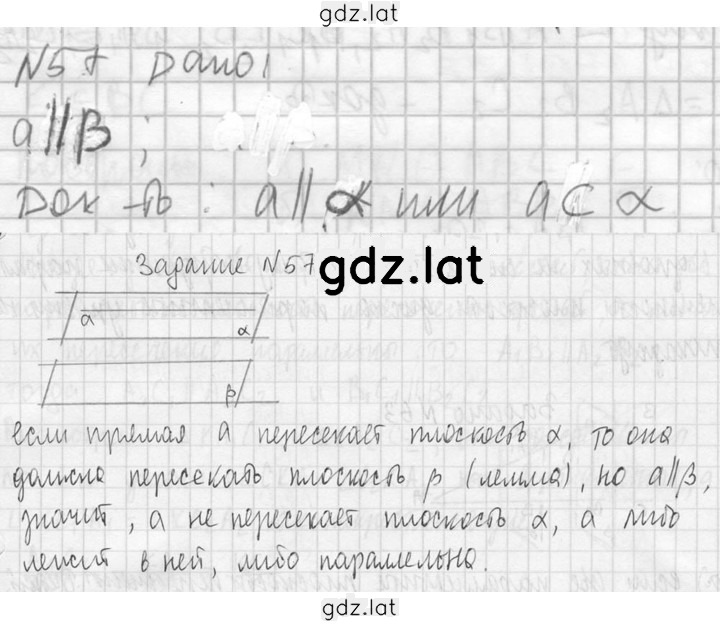 gdz.lat
N57 Дано:
a||β;
Док-ть: a||α или a⊂α
Задание N57
gdz.lat
a
α
β
если прямая a пересекает плоскость α, то она
должна пересекать плоскость β (лемма), но a||β,
значит, a не пересекает плоскость α, а либо
лежит в ней, либо параллельна.
gdz.lat